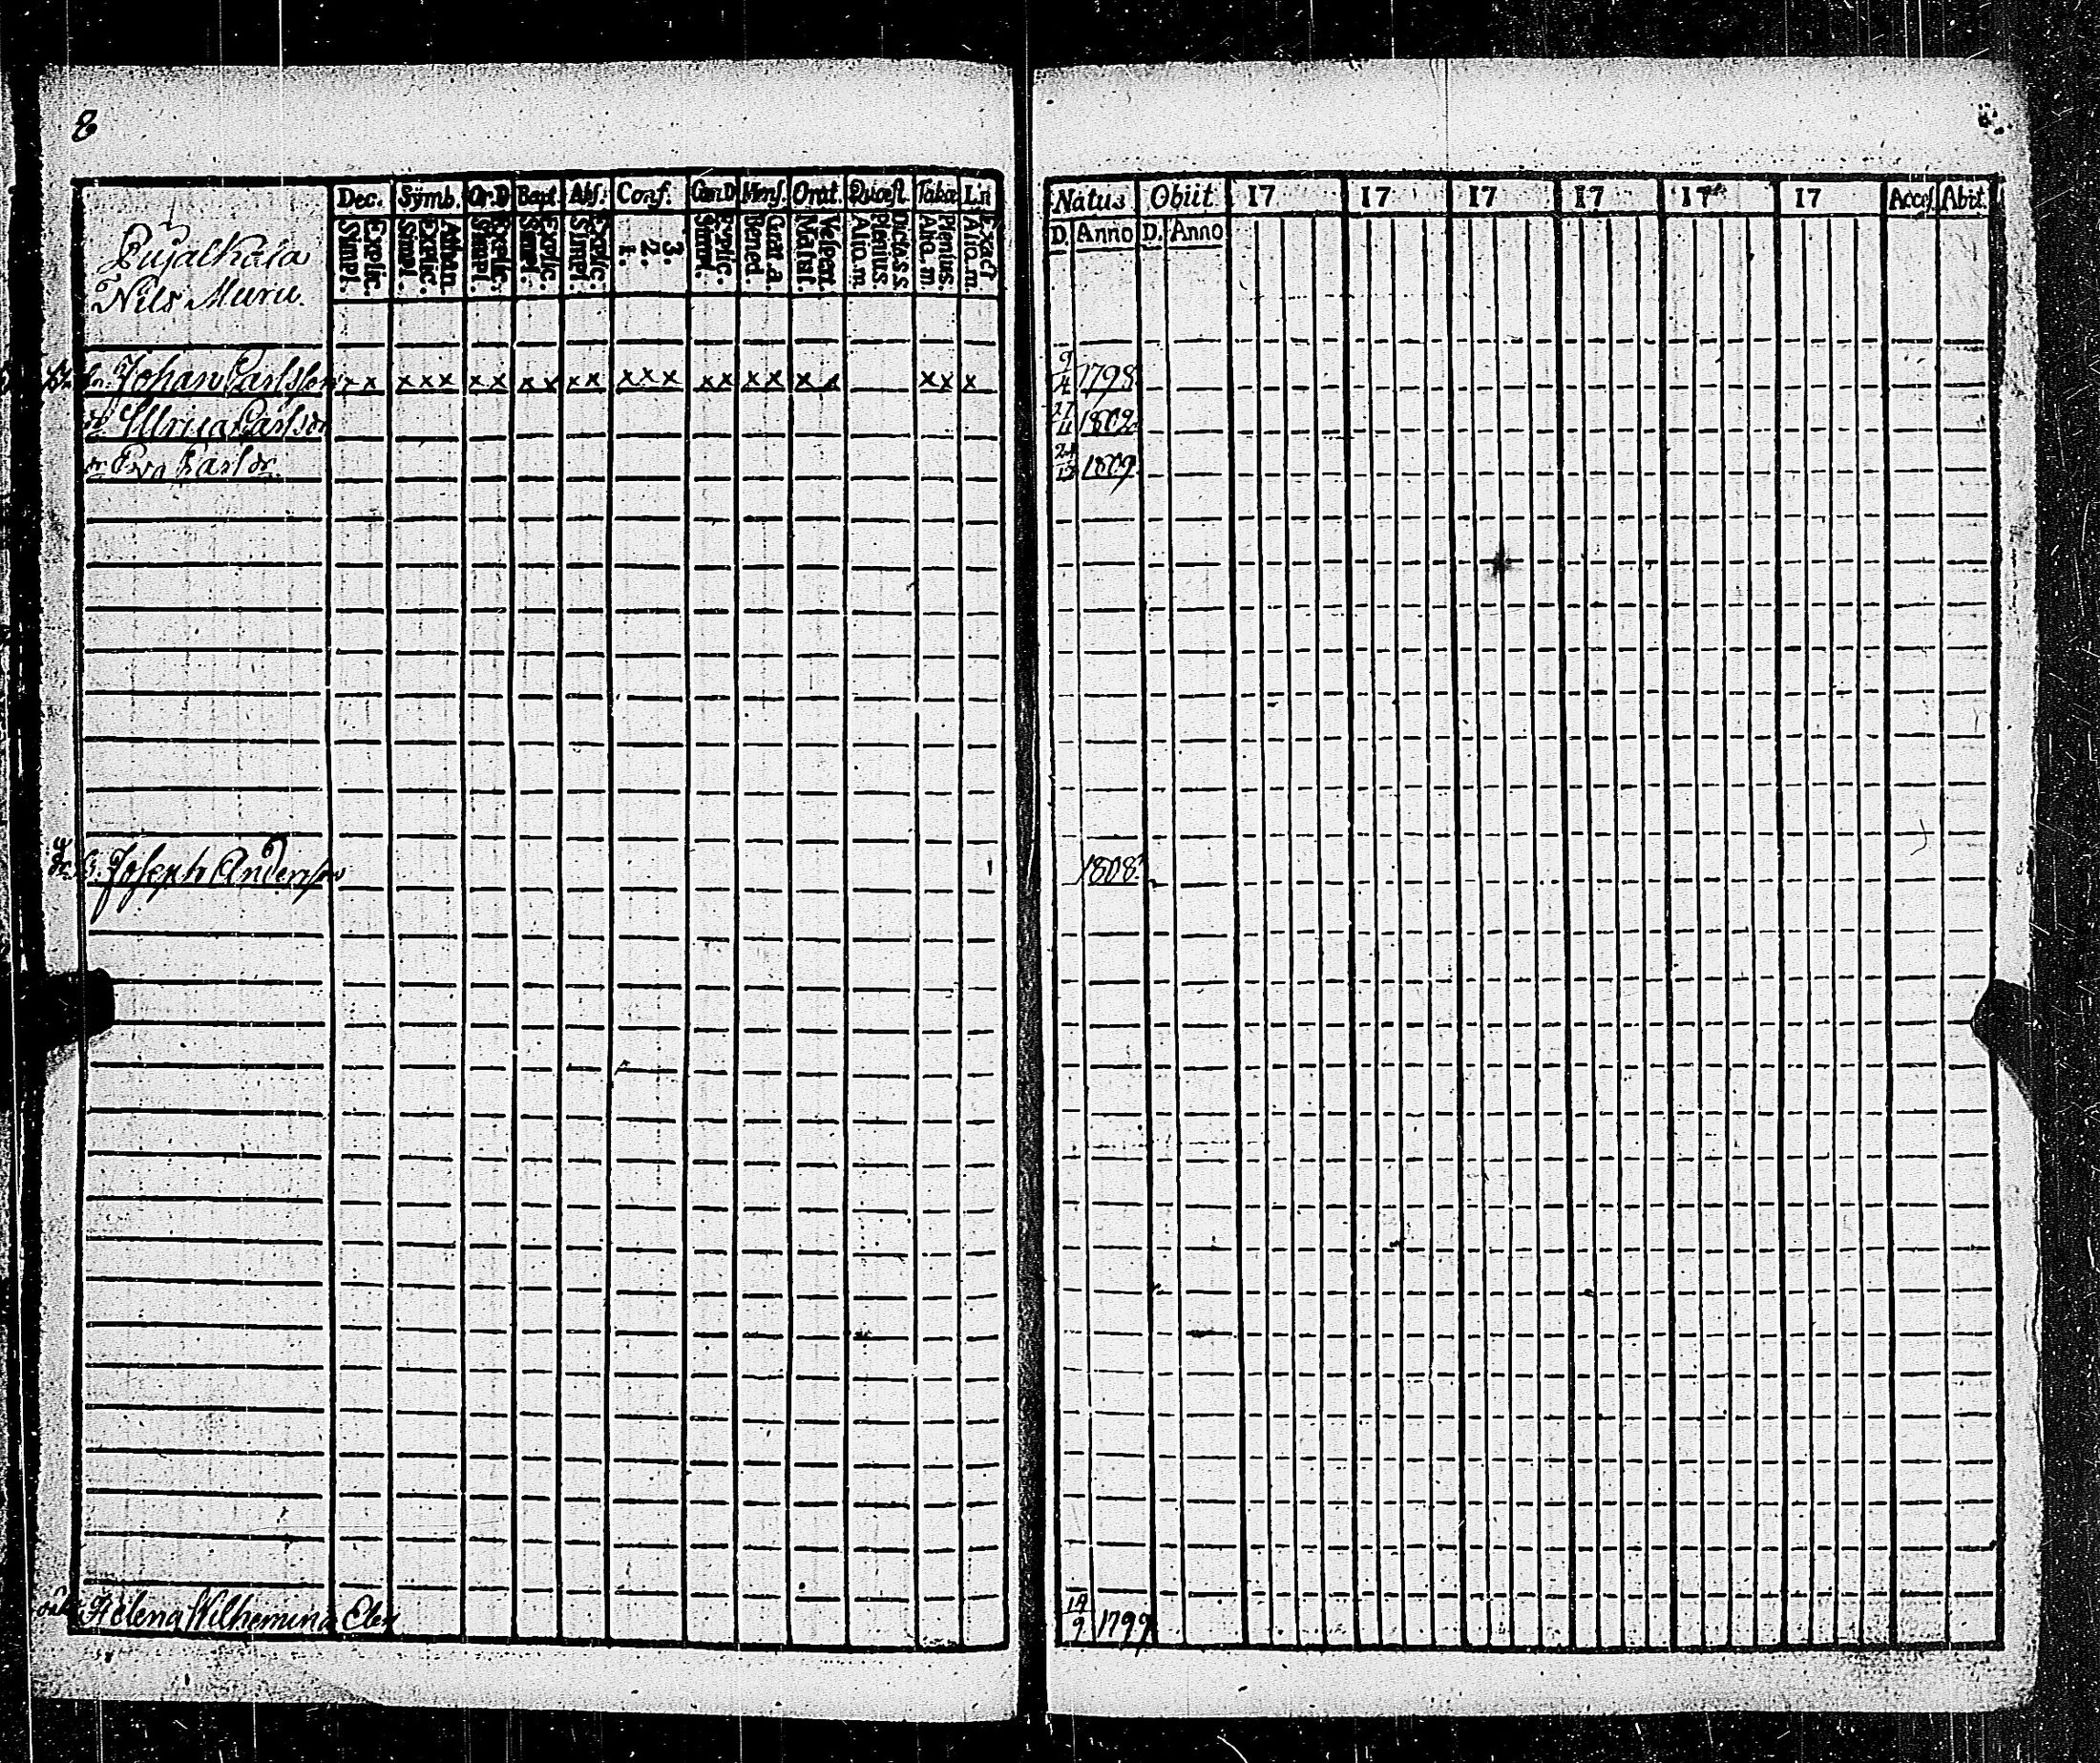 8
Dec. Symb. Or.D Bapt. Abs: Conf. Cœn.D Mens. Orat. Quæst. Tabæ L.n
Simpl. Explic. Simpl. Explic. Athan. Simpl. Explic. Simpl. Explic. Simpl. Explic. 1. 2. 3. Simpl. Explic. Bened. Grat. a. Matut. Vespert. Alio. m. Plenius. Dicta. s.s Alia. m Plenius. Alio. m. Exact
Nils Muru.
Johan Carlsson x x x x x x x x x x x x x x x x x x x x x x x
Ulrica Carlsdr
Eva Carlsdr
Joseph Andersson
Helena Wilhemina
Natus Obiit 17 17 17 17 17 17 Acces Abit.
D. Anno D. Anno
9/4 1798
27/11 1802
24/12 1809
1808
19/9 1799